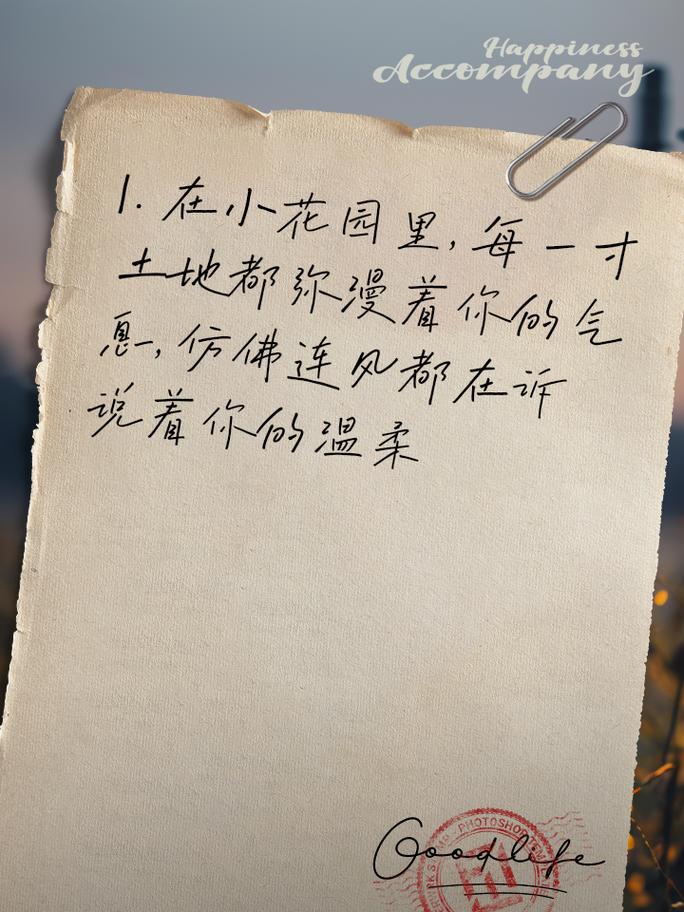 Happiness
Accompany
1. 在小花园里,每一寸
土地都弥漫着你的气
息,仿佛连风都在诉
说着你的温柔
PHOTOSHOP
Goodlife